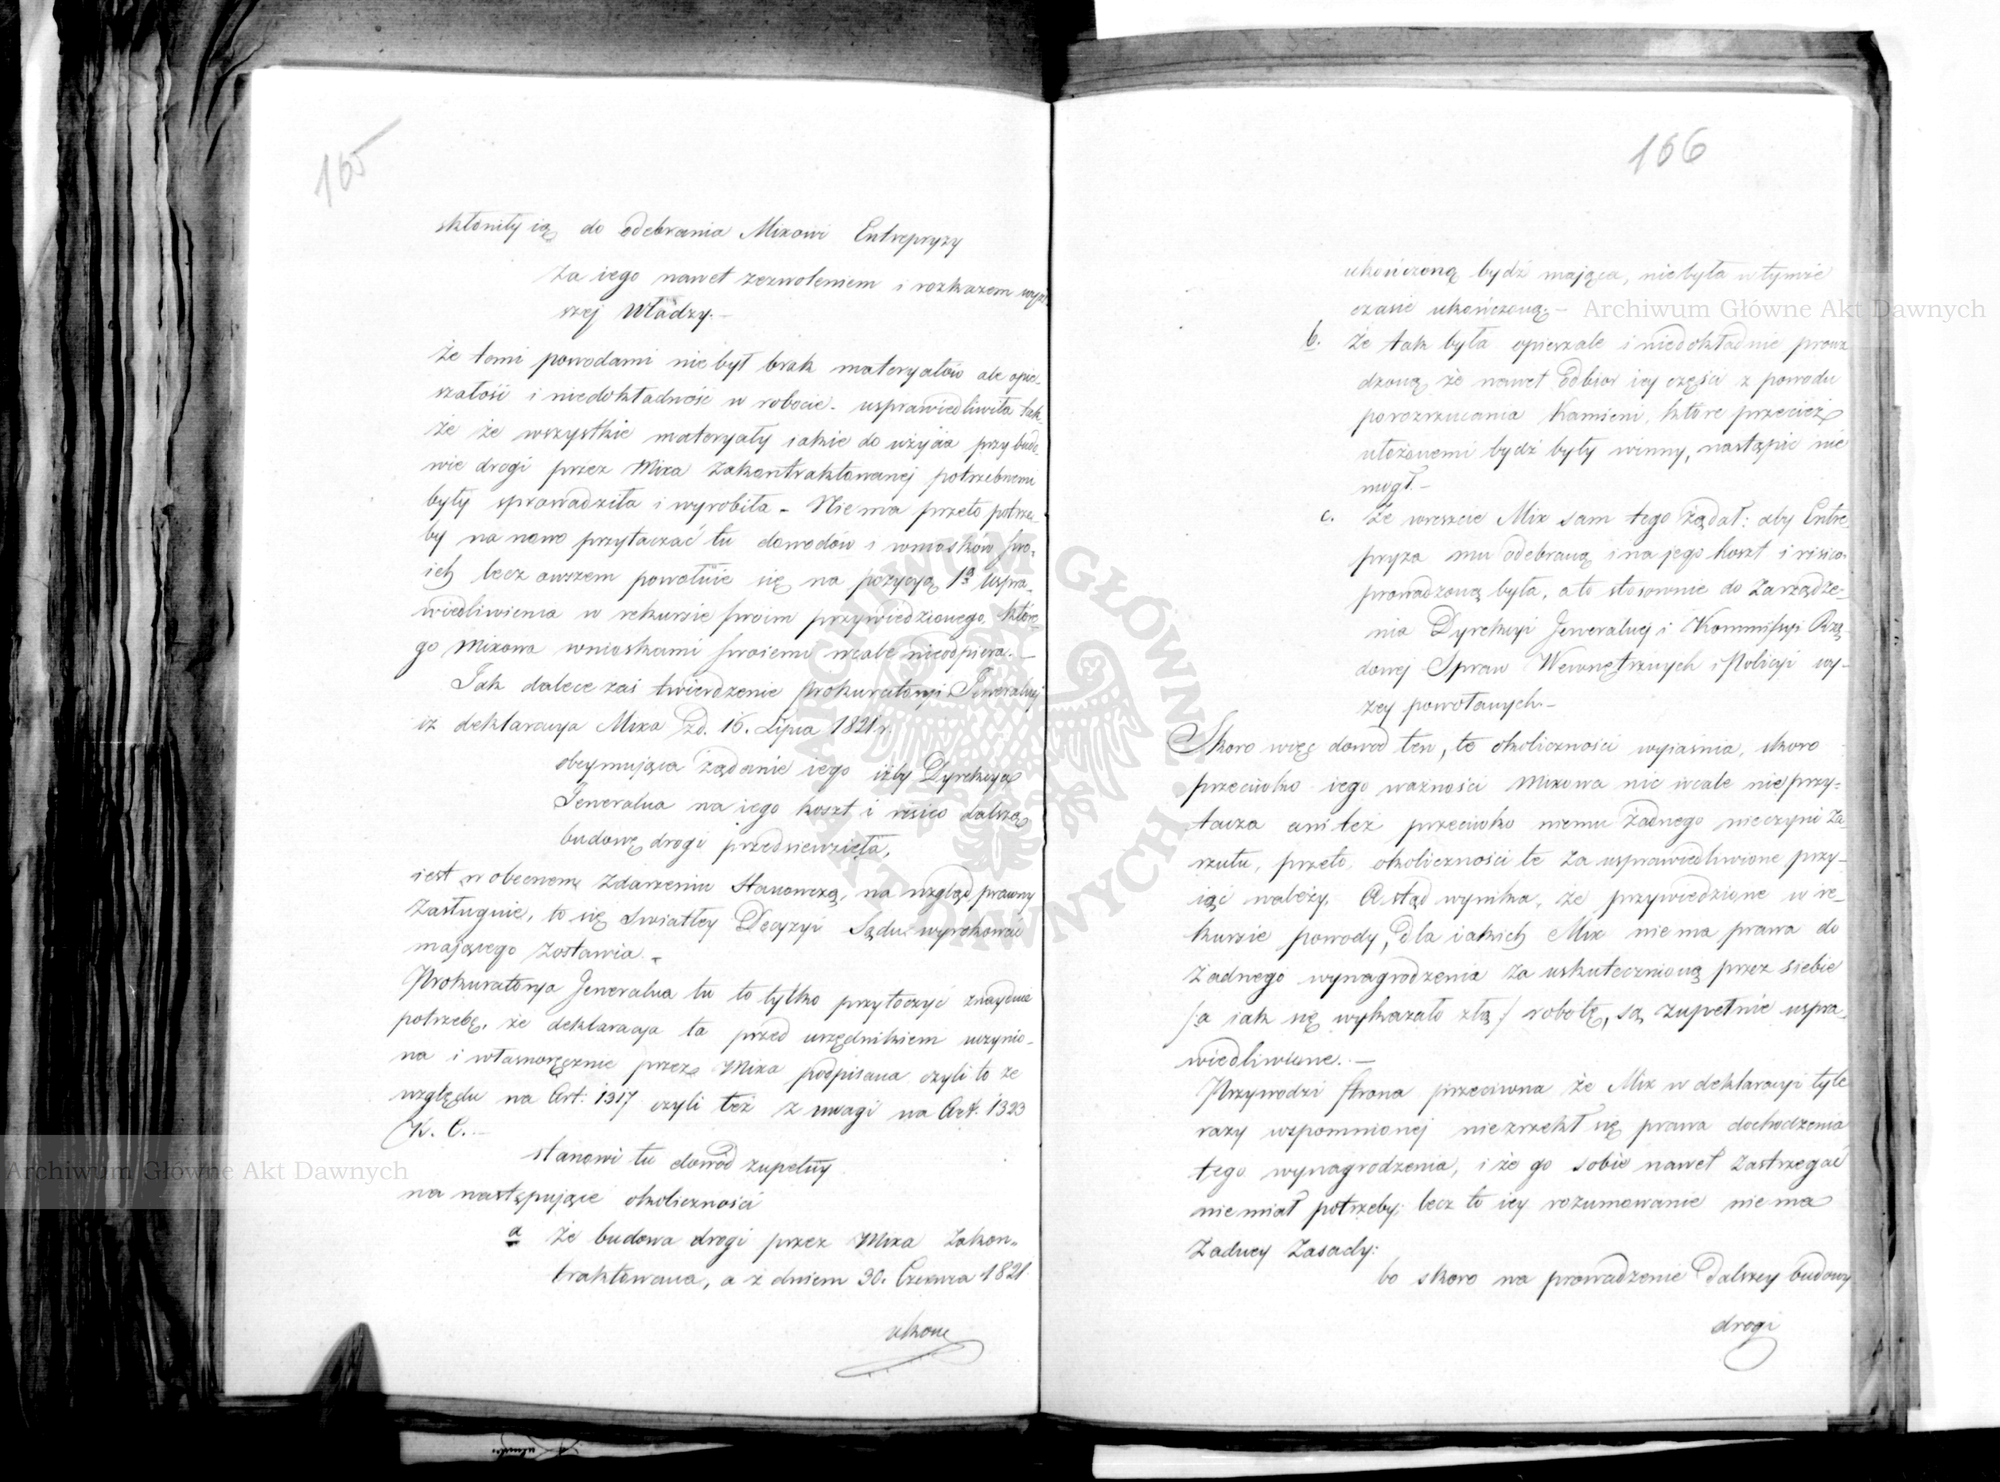 165
skłoniły ią do odebrania Mixowi Entrepryzy
za iego nawet zezwoleniem i rozkazem wyż-
szej Władzy. —
że temi powodami nie był brak materyałów ale opie-
szałość i niedokładność w robocie. usprawiedliwiła tak-
że że wszystkie materyały iakie do użycia przy budo-
wie drogi przez Mixa zakontraktowanej potrzebnemi
były sprowadziła i wyrobiła — Niema przeto potrze-
by na nowo przytaczać tu dowodów i wniosków swo-
ich lecz owszem powołuie się na pozycyą 1ą uspra-
wiedliwienia w rekursie swoim przywiedzionego, które-
go Mixowa wnioskami swoiemi wcale nieodpiera. —
Jak dalece zaś twierdzenie Prokuratoryi Jeneralnej
iż deklaracya Mixa z d. 16. Lipca 1821 r.
obeymuiąca żądanie iego iżby Dyrekcya
Jeneralna na iego koszt i risico dalszą
budowę drogi przedsiewzięła,
iest w obecnem zdarzeniu stanowczą, na wzgląd prawny
zasługuie, to się światłey Decyzyi Sądu wyrokować
maiącego zostawia. —
Prokuratorya Jeneralna tu to tylko przytoczyć znayduie
potrzebę, że deklaracya ta przed urzędnikiem uczynio-
na i własnoręcznie przez Mixa podpisana czyli to ze
względu na Art: 1317 czyli też z uwagi na Art. 1323
K. C. —
stanowi tu dowód zupełny
na następuiące okoliczności
a że budowa drogi przez Mixa zakon-
traktowana, a z dniem 30. Czerwca 1821
ukoń
166
ukończoną bydź maiąca, niebyła w tymże
czasie ukończoną; —
b. że tak była opieszale i niedokładnie prowa
dzoną że nawet odbior iey części z powodu
porozrzucania Kamieni, które przecież
ułożonemi bydź były winny, nastąpić nie
mogł. —
c. że wreszcie Mix sam tego żądał: aby Entre-
pryza mu odebraną i na jego koszt i risico
prowadzoną była, a to stosownie do zarządze-
nia Dyrekcyi Jeneralnej i Kommissyi Rzą-
dowej Spraw Wewnętrznych i Policyi wy-
żey powołanych. —
Skoro więc dowód ten, te okoliczności wyiaśnia, skoro
przeciwko iego ważności Mixowa nic wcale nieprzy-
tacza ani też przeciwko niemu żadnego nieczyni za-
rzutu, przeto okoliczności te za usprawiedliwione przy-
iąć należy. A stąd wynika, że przywiedzione w re-
kursie powody, dla iakich Mix niema prawa do
żadnego wynagrodzenia za uskutecznioną przez siebie
/: a iak się wykazało złą :/ robotę, są zupełnie uspra-
wiedliwione. —
Przywodzi strona przeciwna że Mix w deklaracyi tyle
razy wspomnionej niezrzekł się prawa dochodzenia
tego wynagrodzenia, i że go sobie nawet zastrzegać
niemiał potrzeby; lecz to iey rozumowanie niema
żadney zasady:
bo skoro na prowadzenie dalszey budowy
drogi
Archiwum Główne Akt Dawnych
Archiwum Główne Akt Dawnych
ARCHIWUM GŁÓWNE AKT DAWNYCH